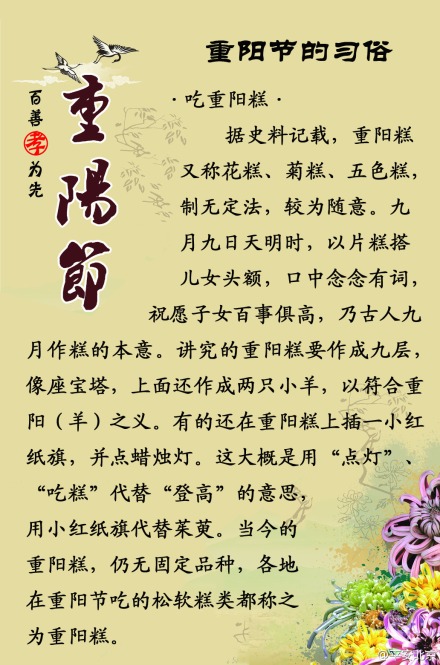 重阳节的习俗
百善孝为先
重陽節
·吃重阳糕·
据史料记载，重阳糕
又称花糕、菊糕、五色糕，
制无定法，较为随意。九
月九日天明时，以片糕搭
儿女头额，口中念念有词，
祝愿子女百事俱高，乃古人九
月作糕的本意。讲究的重阳糕要作成九层，
像座宝塔，上面还作成两只小羊，以符合重
阳（羊）之义。有的还在重阳糕上插一小红
纸旗，并点蜡烛灯。这大概是用“点灯”、
“吃糕”代替“登高”的意思，
用小红纸旗代替茱萸。当今的
重阳糕，仍无固定品种，各地
在重阳节吃的松软糕类都称之
为重阳糕。